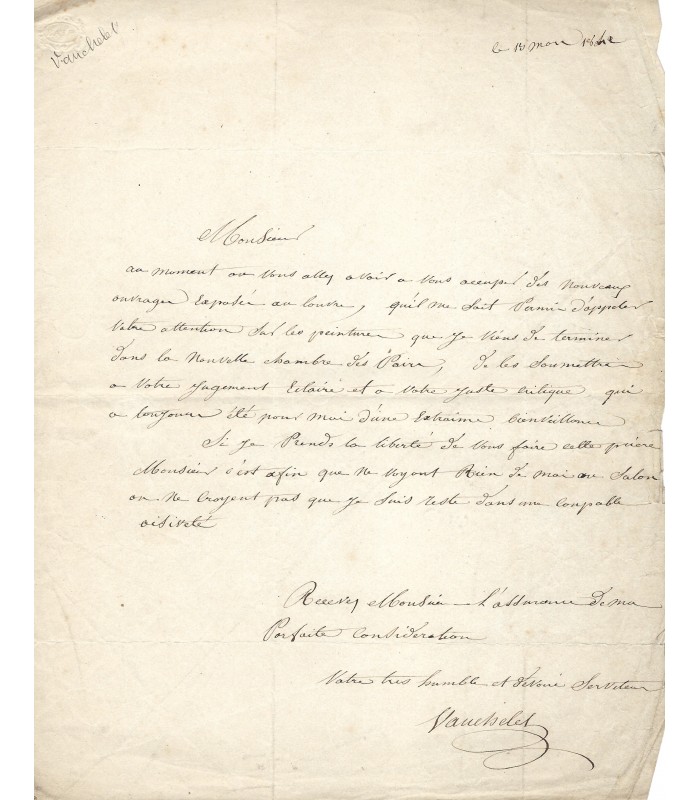 Vauchelet
le 15 mars 1842
Monsieur
au moment ou vous allez avoir a vous occuper des nouveaux
ouvrages Exposés au louvre, qu'il me soit Permis d'appeler
Votre attention sur les peintures que je viens de terminer
dans la nouvelle chambre des Pairs, de les soumettre
a votre jugement Eclairé et a votre juste critique qui
a toujours été pour moi d'une Extraime bienveillance
Si je Prends la liberté de vous faire cette prière
Monsieur c'est afin que ne voyant Rien de moi au Salon
on ne croyent pas que je suis resté dans une coupable
oisiveté
Recevez Monsieur l'assurance de ma
Parfaite consideration
Votre tres humble et dévoué Serviteur
Vauchelet